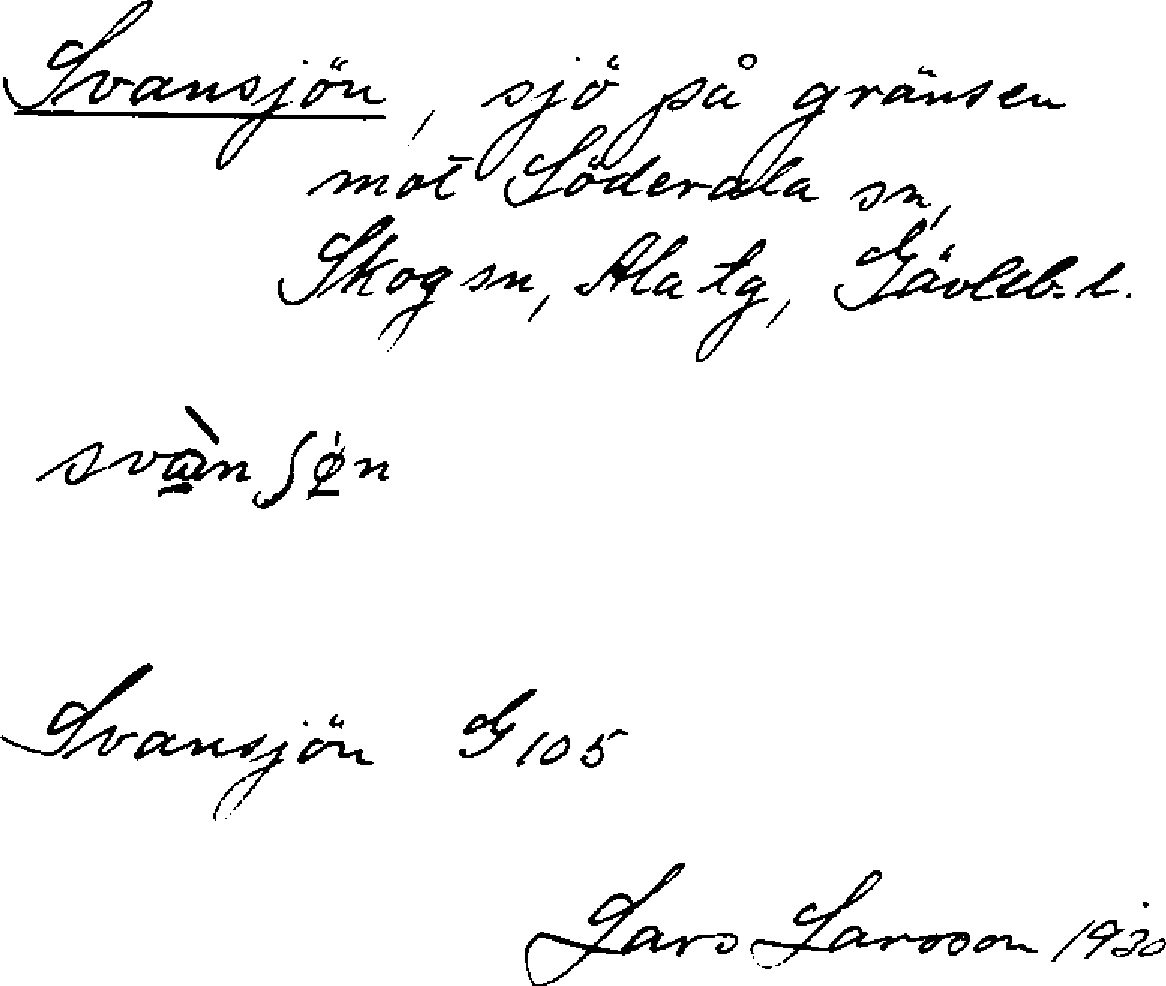 Svansjön, sjö på gränsen
mot Söderala sn,
Skog sn, Ala tg, Gävleb. l.
svà̱n ʃø̱̍n
Svansjön G 105
Lars Larsson 1930